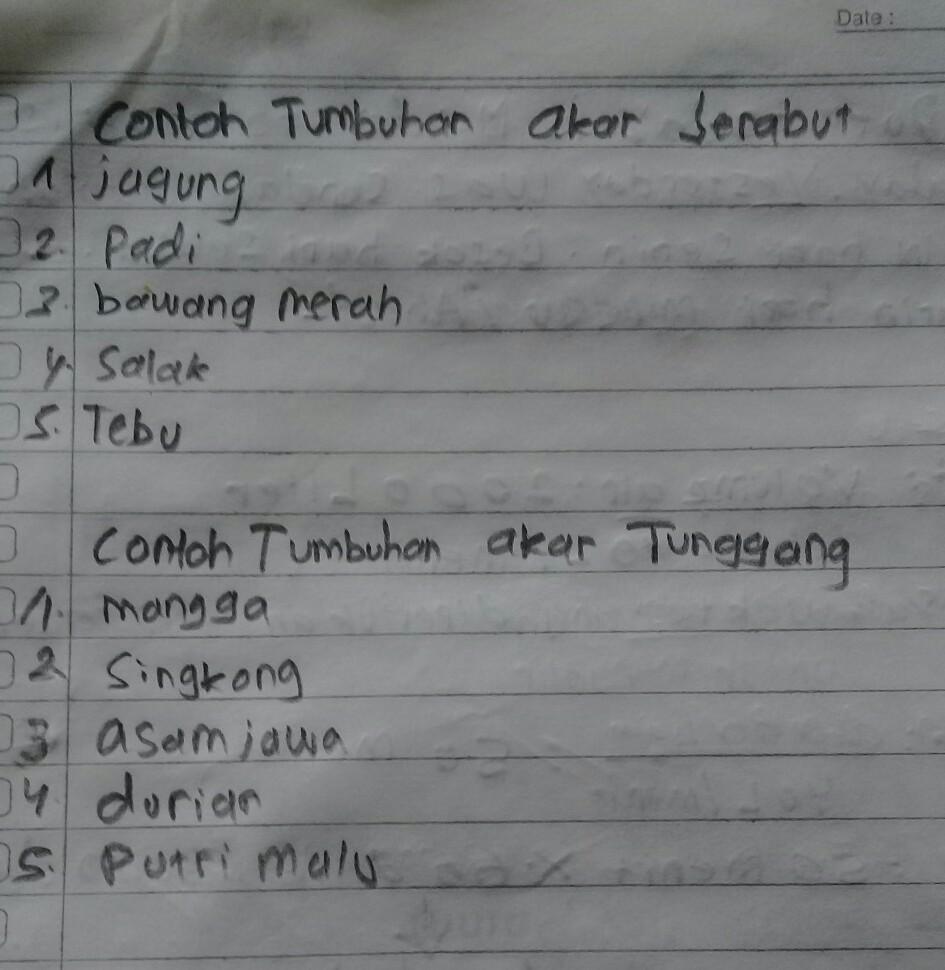 Date :
Contoh Tumbuhan akar Serabut
1 jagung
2. Padi
3. bawang merah
4. Salak
5. Tebu
Contoh Tumbuhan akar Tunggang
1. mangga
2 Singkong
3 asam jawa
4 durian
5. Putri malu